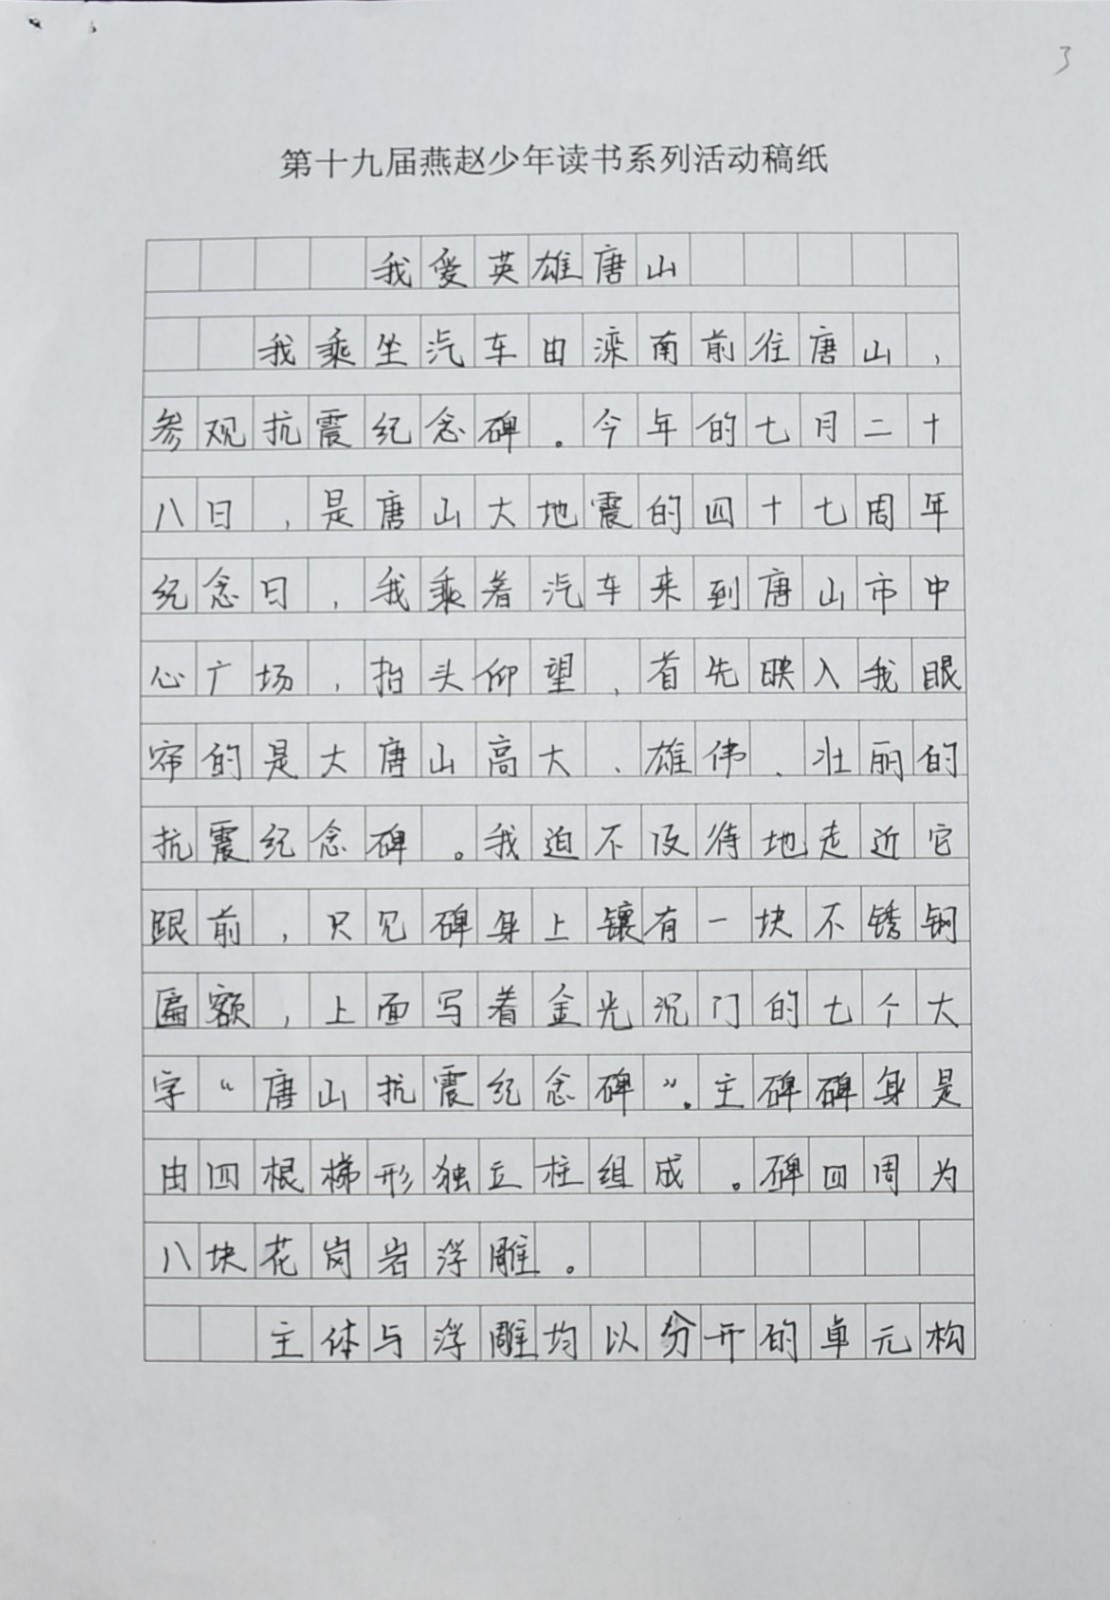 3
第十九届燕赵少年读书系列活动稿纸
我爱英雄唐山
我乘坐汽车由滦南前往唐山，
参观抗震纪念碑。今年的七月二十
八日，是唐山大地震的四十七周年
纪念日，我乘着汽车来到唐山市中
心广场，抬头仰望，首先映入我眼
帘的是大唐山高大、雄伟、壮丽的
抗震纪念碑。我迫不及待地走近它
跟前，只见碑身上镶有一块不锈钢
匾额，上面写着金光沉门的七个大
字“唐山抗震纪念碑”。主碑碑身是
由四根梯形独立柱组成。碑四周为
八块花岗岩浮雕。
主体与浮雕均以分开的单元构